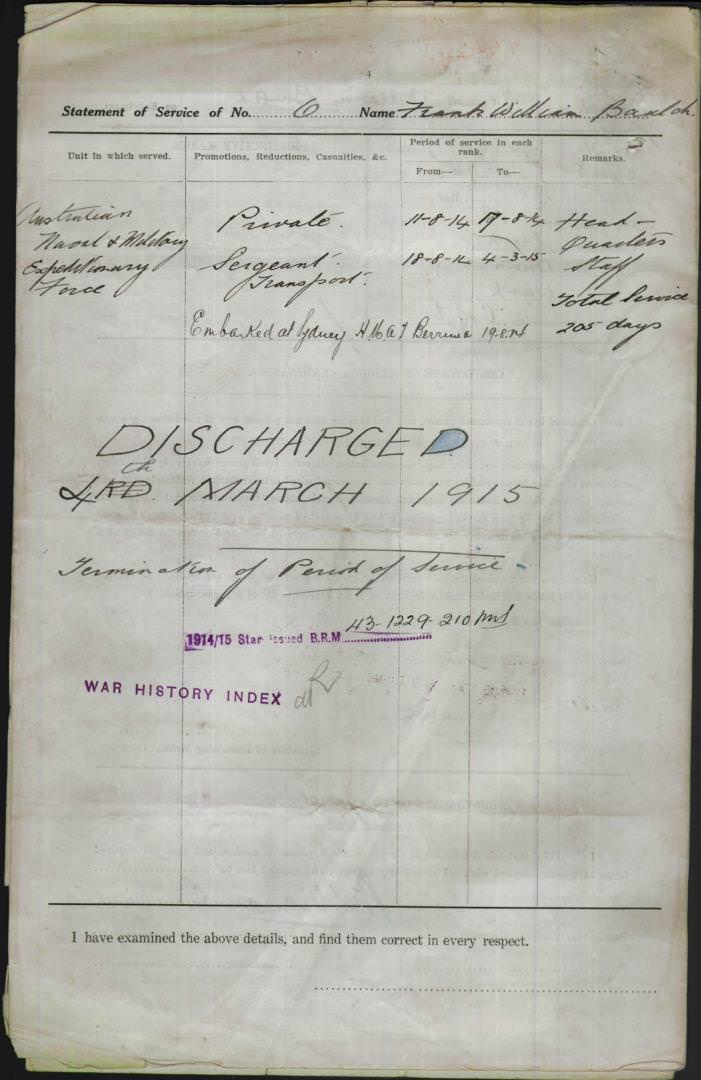 Statement of Service of No. 6 Name Frank William Baulch.
Unit in which served. Promotions, Reductions, Casualties, &c. Period of service in each rank. Remarks.
From— To—
Australian Private. 11-8-14 17-8-14 Head-
Naval & Military Quarters
Expeditionary Sergeant. 18-8-14 4-3-15 Staff
Force Transport. Total Service
Embarked at Sydney H.M.A.T Berrima 19.8.14 205 days
DISCHARGED.
4RD th MARCH 1915
Termination of Period of Service.
1914/15 Star issued B.R.M. 43-1229-210
WAR HISTORY INDEX
I have examined the above details, and find them correct in every respect.